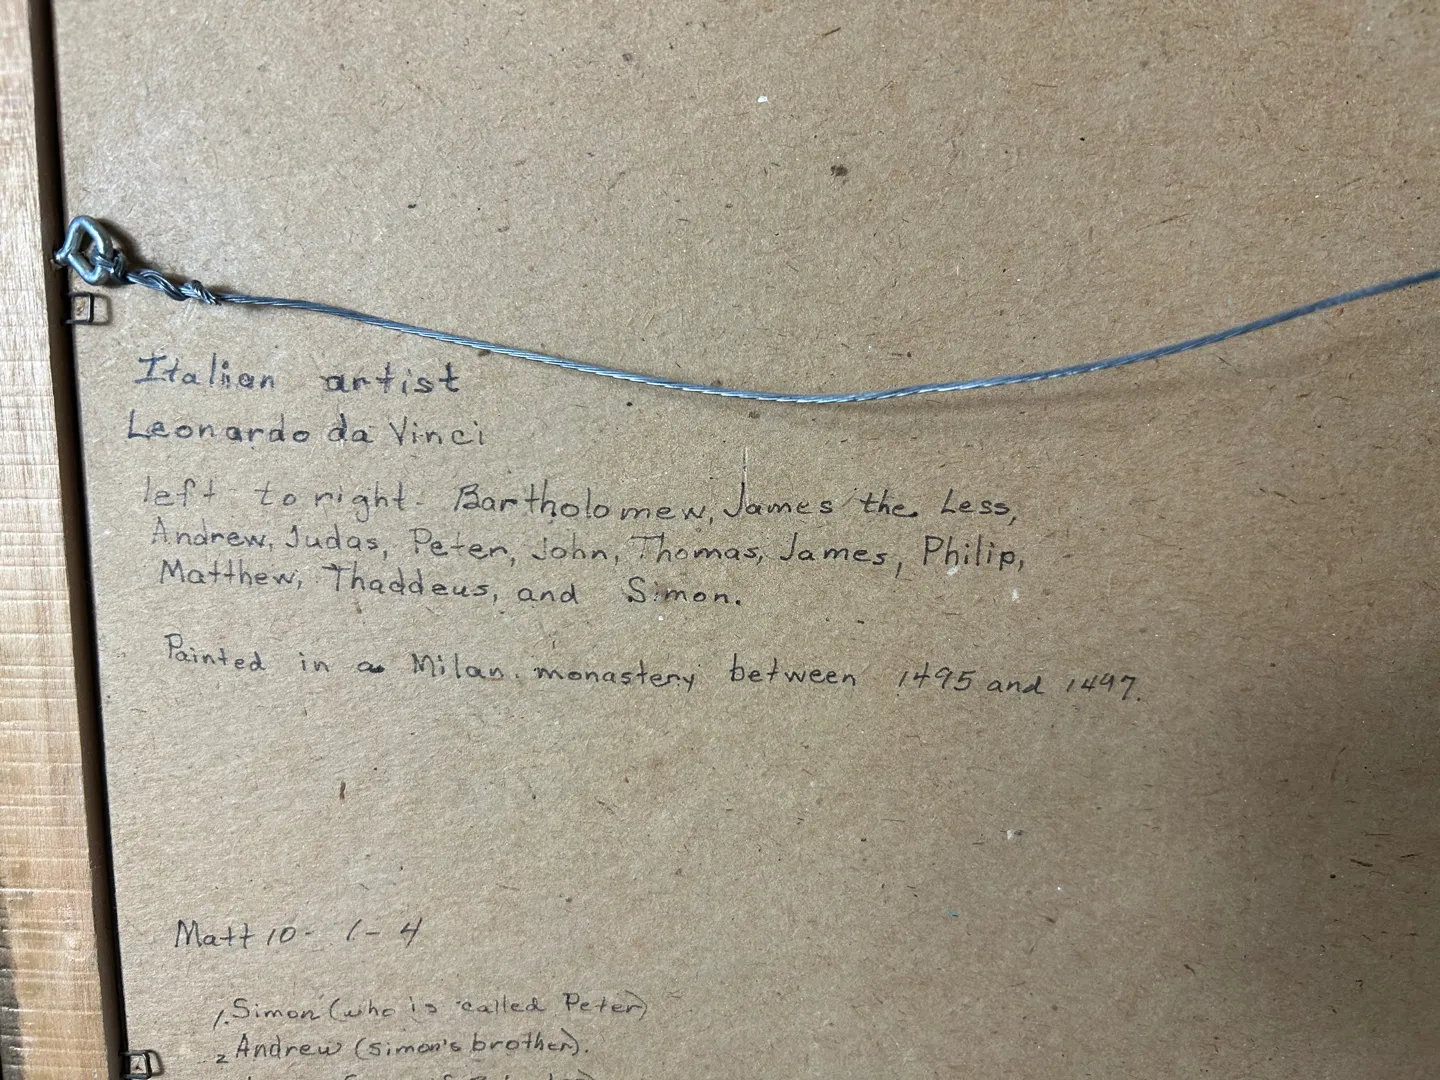 Italian artist
Leonardo da Vinci
left to right - Bartholomew, James the Less,
Andrew, Judas, Peter, John, Thomas, James, Philip,
Matthew, Thaddeus, and Simon.
Painted in a Milan monastery between 1495 and 1497.
Matt 10 - 1 - 4
1. Simon (who is called Peter)
2 Andrew (simon's brother).